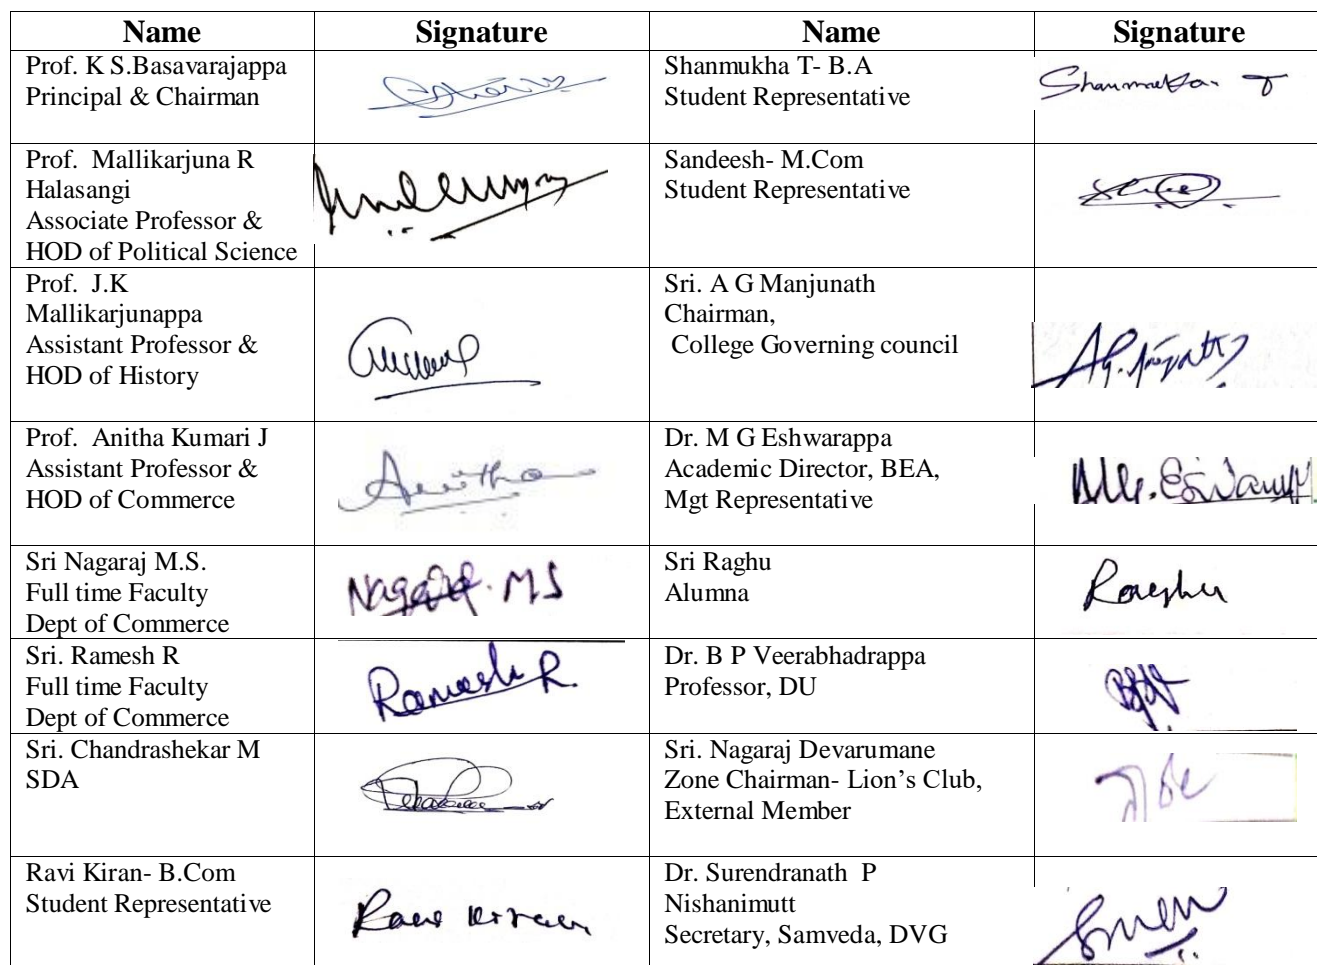 Name Signature Name Signature
Prof. K S.Basavarajappa
Principal & Chairman
Shanmukha T- B.A
Student Representative
Shanmukha. T
Prof. Mallikarjuna R
Halasangi
Associate Professor &
HOD of Political Science
Sandeesh- M.Com
Student Representative
Prof. J.K
Mallikarjunappa
Assistant Professor &
HOD of History
Sri. A G Manjunath
Chairman,
College Governing council
Prof. Anitha Kumari J
Assistant Professor &
HOD of Commerce
Anitha
Dr. M G Eshwarappa
Academic Director, BEA,
Mgt Representative
Sri Nagaraj M.S.
Full time Faculty
Dept of Commerce
Nagaraj. M S
Sri Raghu
Alumna
Raghu
Sri. Ramesh R
Full time Faculty
Dept of Commerce
Ramesh R.
Dr. B P Veerabhadrappa
Professor, DU
Sri. Chandrashekar M
SDA
Sri. Nagaraj Devarumane
Zone Chairman- Lion's Club,
External Member
Ravi Kiran- B.Com
Student Representative
Ravi Kiran
Dr. Surendranath P
Nishanimutt
Secretary, Samveda, DVG